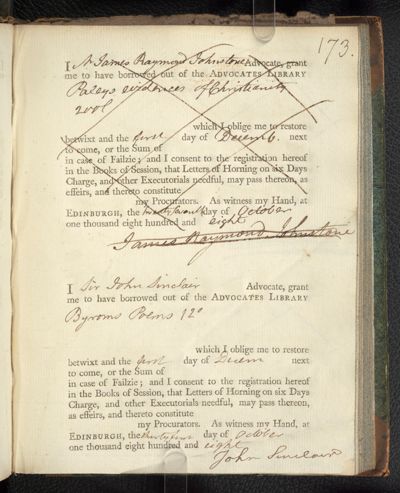 173.
I Mr James Raymond Johnstone Advocate, grant
me to have borrowed out of the ADVOCATES LIBRARY
Paleys evidences of Christianity
2 vol
which I oblige me to restore
betwixt and the first day of Decemb. next
to come, or the Sum of
in case of Failzie; and I consent to the registration hereof
in the Books of Session, that Letters of Horning on six Days
Charge, and other Executorials needful, may pass thereon, as
effeirs, and thereto constitute
my Procurators. As witness my Hand, at
EDINBURGH, the day of October
one thousand eight hundred and eight
James Raymond Johnstone
I Sir John Sinclair Advocate, grant
me to have borrowed out of the ADVOCATES LIBRARY
Byroms Poems 12o
which I oblige me to restore
betwixt and the first day of Decem next
to come, or the Sum of
in case of Failzie; and I consent to the registration hereof
in the Books of Session, that Letters of Horning on six Days
Charge, and other Executorials needful, may pass thereon,
as effeirs, and thereto constitute
my Procurators. As witness my Hand, at
EDINBURGH, the thirty first day of October
one thousand eight hundred and eight
John Sinclair